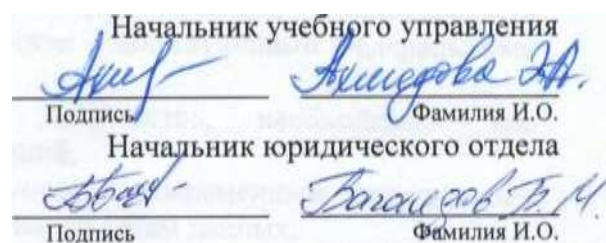 Начальник учебного управления
Ахмедова Э.А.
Подпись Фамилия И.О.
Начальник юридического отдела
Багандов Б.М.
Подпись Фамилия И.О.